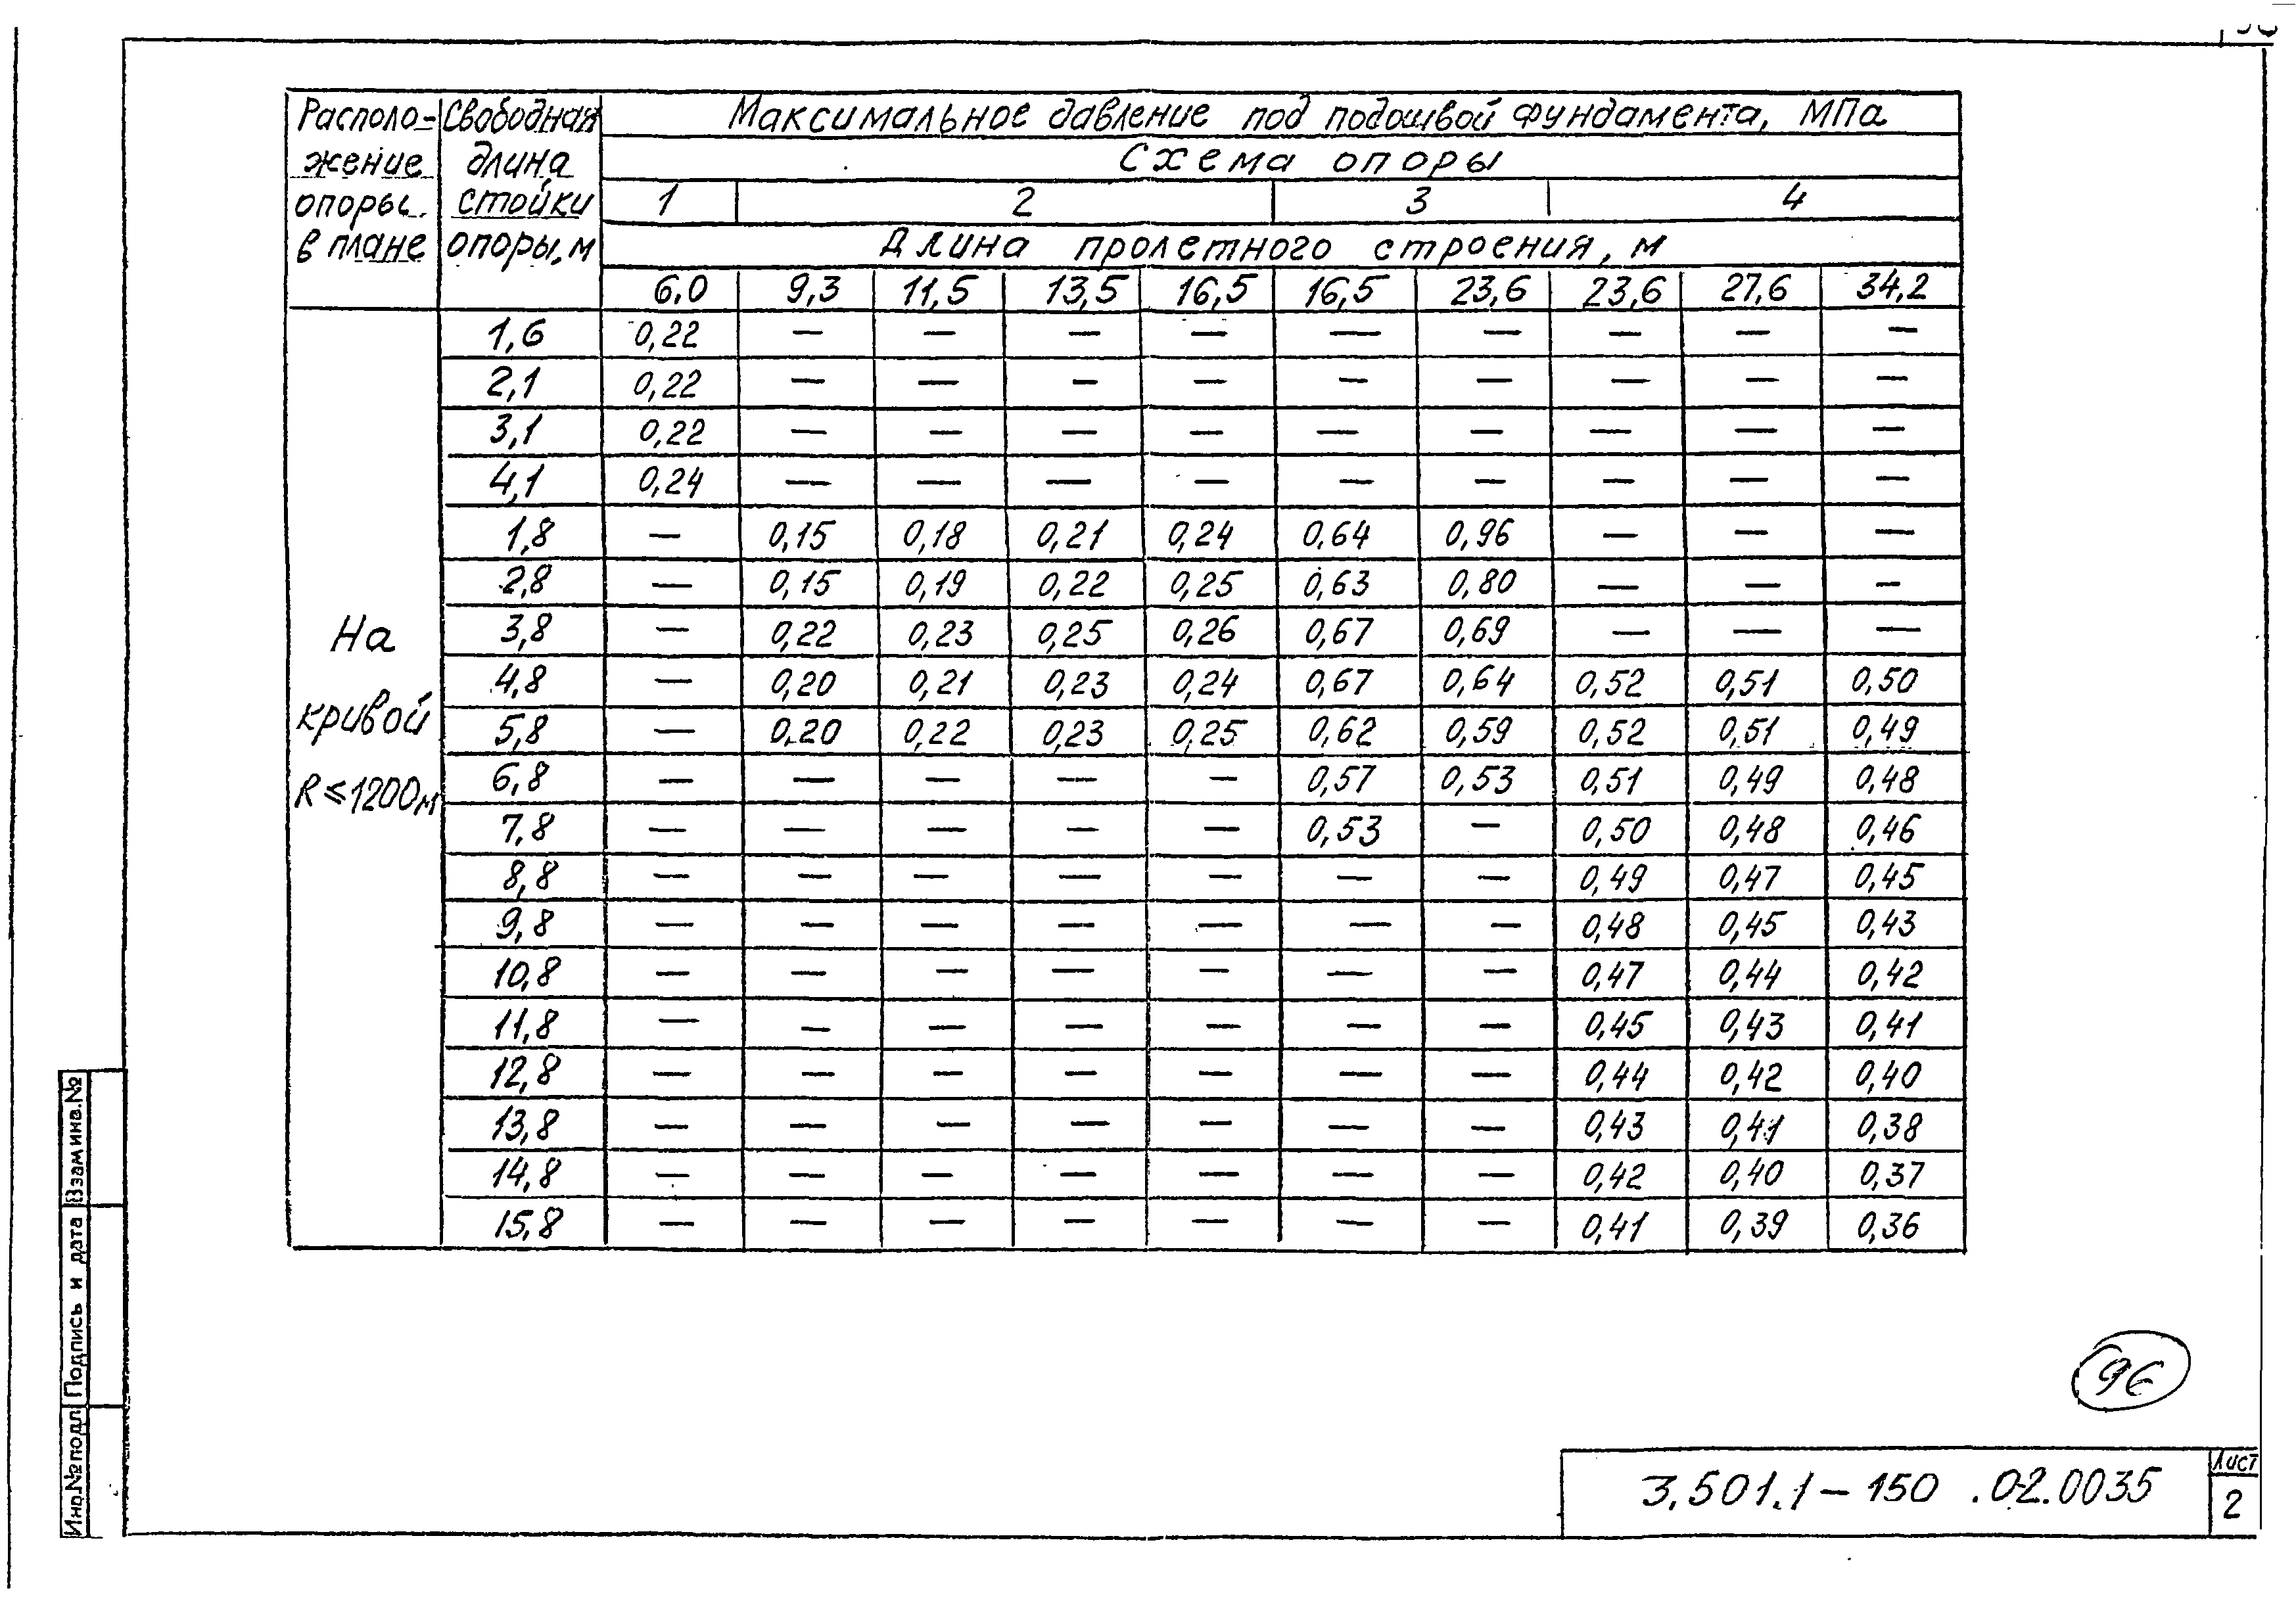 Располо- Свободная Максимальное давление под подошвой фундамента, МПа
жение длина Схема опоры
опоры стойки 1 2 3 4
в плане опоры, м Длина пролетного строения, м
6,0 9,3 11,5 13,5 16,5 16,5 23,6 23,6 27,6 34,2
1,6 0,22 — — — — — — — — —
2,1 0,22 — — — — — — — — —
3,1 0,22 — — — — — — — — —
4,1 0,24 — — — — — — — — —
1,8 — 0,15 0,18 0,21 0,24 0,64 0,96 — — —
2,8 — 0,15 0,19 0,22 0,25 0,63 0,80 — — —
На 3,8 — 0,22 0,23 0,25 0,26 0,67 0,69 — — —
4,8 — 0,20 0,21 0,23 0,24 0,67 0,64 0,52 0,51 0,50
кривой 5,8 — 0,20 0,22 0,23 0,25 0,62 0,59 0,52 0,51 0,49
R ≤ 1200м 6,8 — — — — — 0,57 0,53 0,51 0,49 0,48
7,8 — — — — — 0,53 — 0,50 0,48 0,46
8,8 — — — — — — — 0,49 0,47 0,45
9,8 — — — — — — — 0,48 0,45 0,43
10,8 — — — — — — — 0,47 0,44 0,42
11,8 — — — — — — — 0,45 0,43 0,41
12,8 — — — — — — — 0,44 0,42 0,40
13,8 — — — — — — — 0,43 0,41 0,38
14,8 — — — — — — — 0,42 0,40 0,37
15,8 — — — — — — — 0,41 0,39 0,36
Взам инв.№
Подпись и дата
Инв.№ подл
96
3.501.1-150 .02.0035
Лист
2